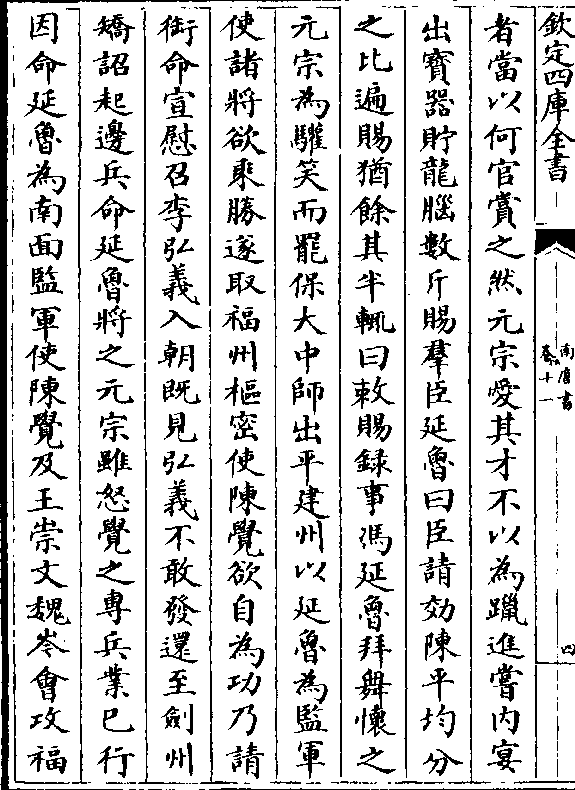 欽定四庫全書
南唐書
卷十一
四
者當以何官賞之然元宗愛其才不以為躐進嘗内宴
出寳器貯龍腦數斤賜羣臣延魯曰臣請効陳平均分
之比遍賜猶餘其半輒曰敕賜録事馮延魯拜舞懷之
元宗為驩笑而罷保大中師出平建州以延魯為監軍
使諸將欲乗勝遂取福州樞密使陳覺欲自為功乃請
銜命宣慰召李弘義入朝既見弘義不敢發還至劍州
矯詔起邊兵命延魯將之元宗雖怒覺之専兵業已行
因命延魯為南面監軍使陳覺及王崇文魏岑會攻福